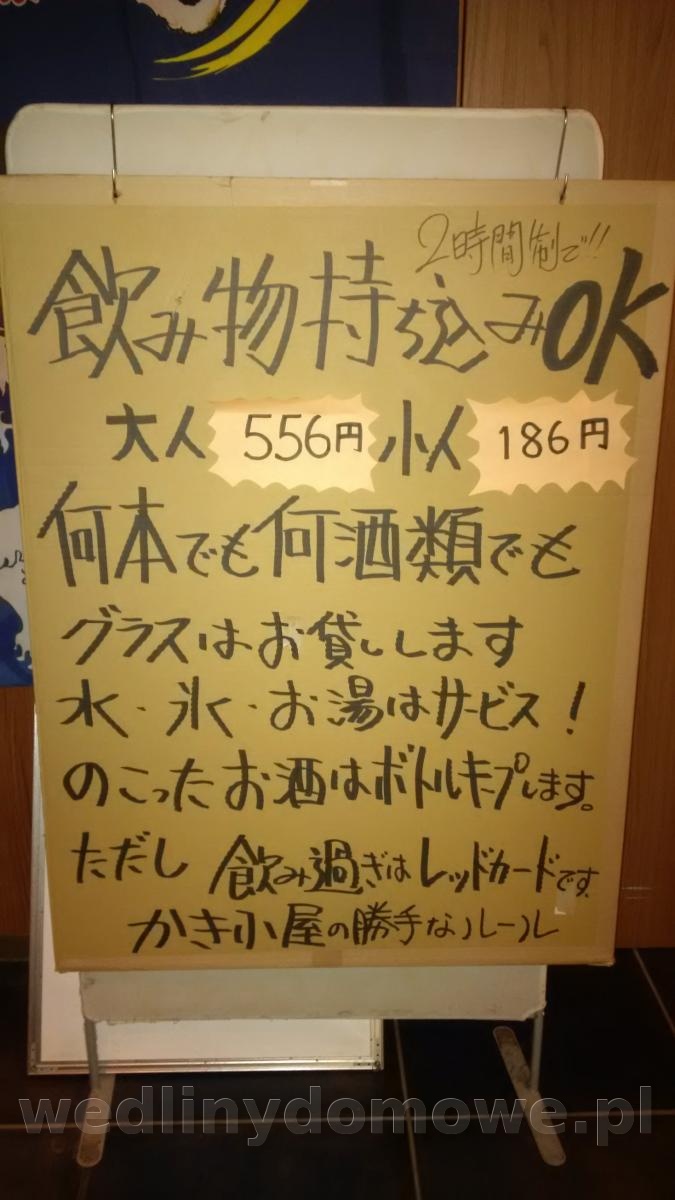 2時間制で!!
飲み物持ち込みOK
大人 556円 小人 186円
何本でも何酒類でも
グラスはお貸しします
水・氷・お湯はサービス!
のこったお酒はボトルキープします。
ただし 飲み過ぎはレッドカードです。
かき小屋の勝手なルール
wedlinydomowe.pl